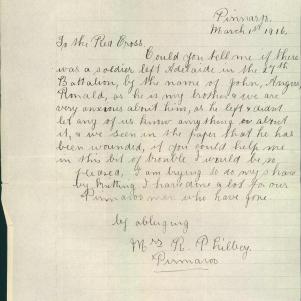 Pinnaroo.
March 1st 1916.
To the Red Cross.
Could you tell me if there
was a soldier left Adelaide in the 27th
Battalion, by the name of John, Angus,
Ronald, as he is my brother & we are
very anxious about him, as he left & didnt
let any of us know anything about
it, & we seen in the paper that he has
been wounded, if you could help me
in this bit of trouble I would be so
pleased, I am trying to do my share
by knitting I have done a lot for our
Pinnaroo men who have gone
by obliging
Mrs R. P.
Pinnaroo